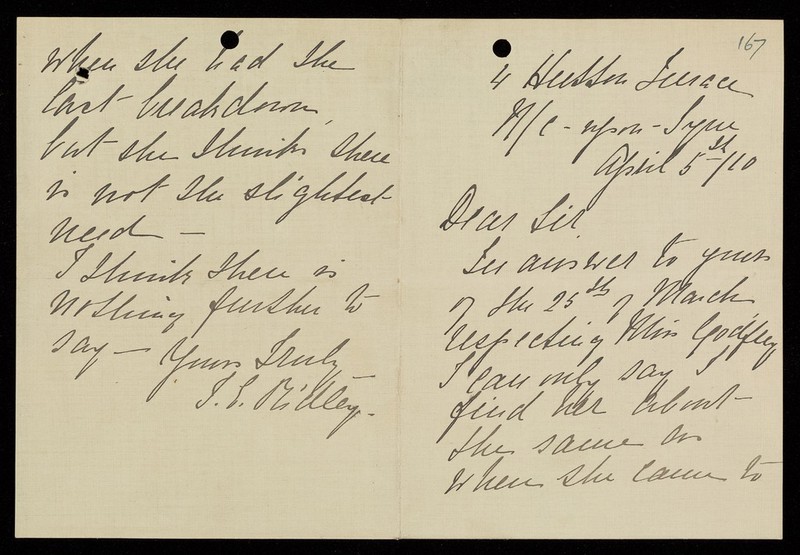 167
4 Hutton Terrace
N/c-upon-Tyne
April 5th/10
Dear Sir
In answer to yours
of the 25th of March
respecting Miss Godfrey
I can only say I
find her about
the same as
when she came to
when she had the
last breakdown,
but she thinks there
is not the slightest
need —
I think there is
nothing further to
say — Yours Truly
Ridley.